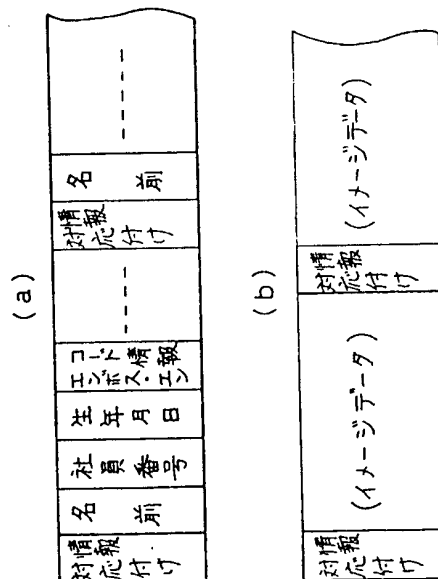 (a)
対応付け
情報
名前
社員番号
生年月日
エンボス・エン
コード情報
-----
対応付け
情報
名前
------
(b)
対応付け
情報
(イメージデータ)
対応付け
情報
(イメージデータ)